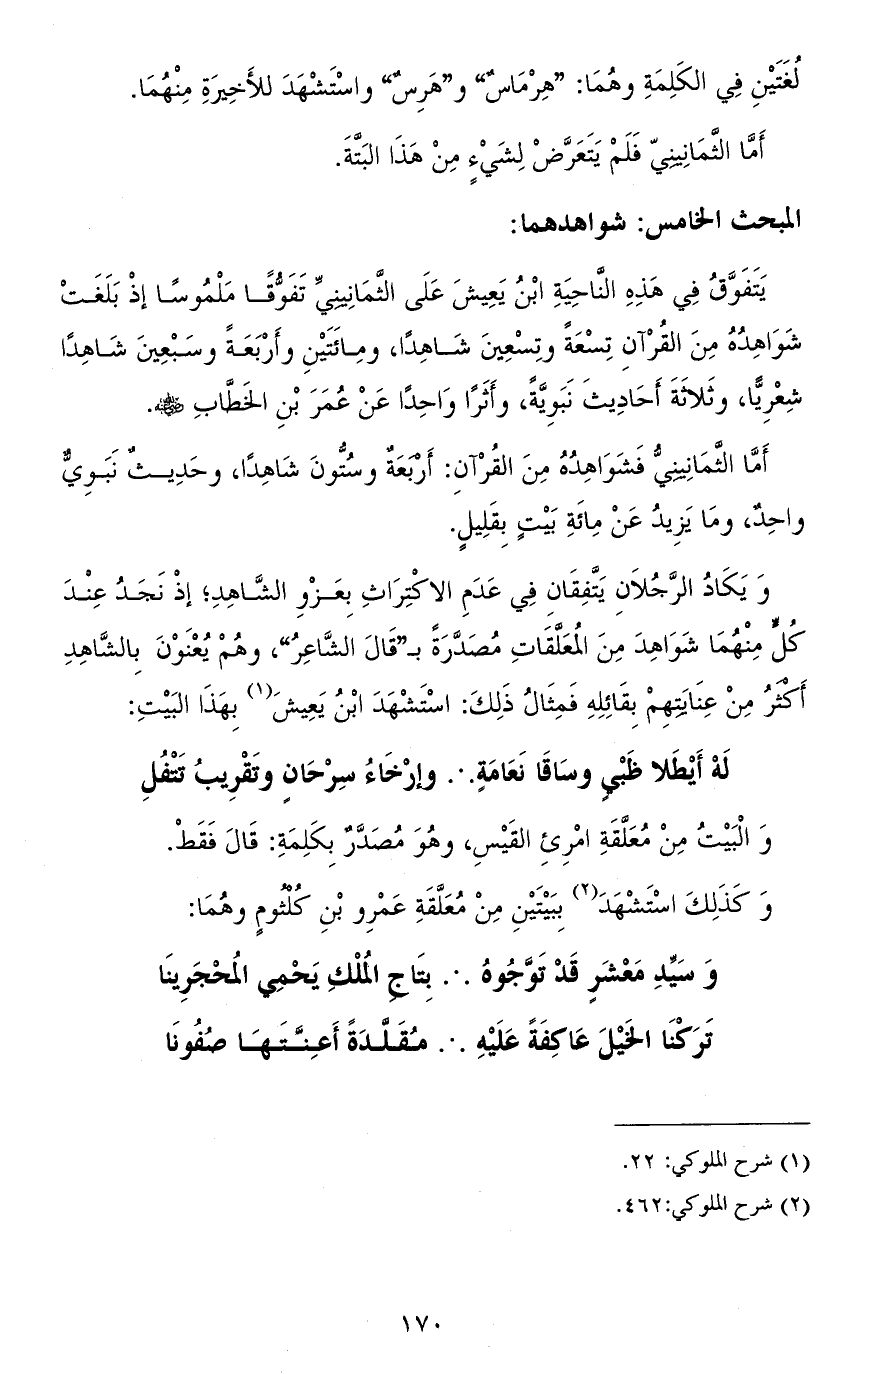 لُغَتَيْنِ فِي الكَلِمَةِ وهُمَا: "هِرْمَاسٌ" و"هَرِسٌ" واسْتَشْهَدَ للأَخِيرَةِ مِنْهُمَا.
أَمَّا الثَّمَانِينِيّ فَلَمْ يَتَعَرَّضْ لِشَيْءٍ مِنْ هَذَا البَتَّةَ.
المبحث الخامس: شواهدهما:
يَتَفَوَّقُ فِي هَذِهِ النَّاحِيَةِ ابْنُ يَعِيشَ عَلَى الثَّمَانِينِيِّ تَفَوُّقًا مَلْمُوسًا إذْ بَلَغَتْ
شَوَاهِدُهُ مِنَ القُرْآنِ تِسْعَةً وتِسْعِينَ شَاهِدًا، ومِائَتَيْنِ وأَرْبَعَةً وسَبْعِينَ شَاهِدًا
شِعْرِيًّا، وثَلاثَةَ أَحَادِيثَ نَبَوِيَّةً، وأَثَرًا وَاحِدًا عَنْ عُمَرَ بْنِ الخَطَّابِ ﵁.
أَمَّا الثَّمَانِينِيُّ فَشَوَاهِدُهُ مِنَ القُرْآنِ: أَرْبَعَةٌ وسُتُّونَ شَاهِدًا، وحَدِيثٌ نَبَوِيٌّ
واحِدٌ، ومَا يَزِيدُ عَنْ مِائَةِ بَيْتٍ بِقَلِيلٍ.
وَ يَكَادُ الرَّجُلاَنِ يَتَّفِقَانِ فِي عَدَمِ الاكْتِرَاثِ بِعَزْوِ الشَّاهِدِ؛ إذْ نَجَدُ عِنْدَ
كُلٍّ مِنْهُمَا شَوَاهِدَ مِنَ المُعَلَّقَاتِ مُصَدَّرَةً بـ"قَالَ الشَّاعِرُ"، وهُمْ يُعْنَوْنَ بِالشَّاهِدِ
أَكْثَرُ مِنْ عِنَايَتِهِمْ بِقَائِلِهِ فَمِثَالُ ذَلِكَ: اسْتَشْهَدَ ابْنُ يَعِيشَ(١) بِهَذَا البَيْتِ:
لَهُ أَيْطَلا ظَبْيٍ وسَاقَا نَعَامَةٍ.·. وإرْخَاءُ سِرْحَانٍ وتَقْرِيبُ تَتْفُلِ
وَ الْبَيْتُ مِنْ مُعَلَّقَةِ امْرِئِ القَيْسِ، وهُوَ مُصَدَّرٌ بِكَلِمَةِ: قَالَ فَقَطْ.
وَ كَذَلِكَ اسْتَشْهَدَ(٢) بِبَيْتَيْنِ مِنْ مُعَلَّقَةِ عَمْرِو بْنِ كُلْثُومٍ وهُمَا:
وَ سَيِّدِ مَعْشَرٍ قَدْ تَوَّجُوهُ .·. بِتَاجِ المُلْكِ يَحْمِي المُحْجَرِينَا
تَرَكْنَا الخَيْلَ عَاكِفَةً عَلَيْهِ .·. مُقَلَّدَةً أَعِنَّتَهَا صُفُونَا
(١) شرح الملوكي: ٢٢.
(٢) شرح الملوكي:٤٦٢.
١٧٠